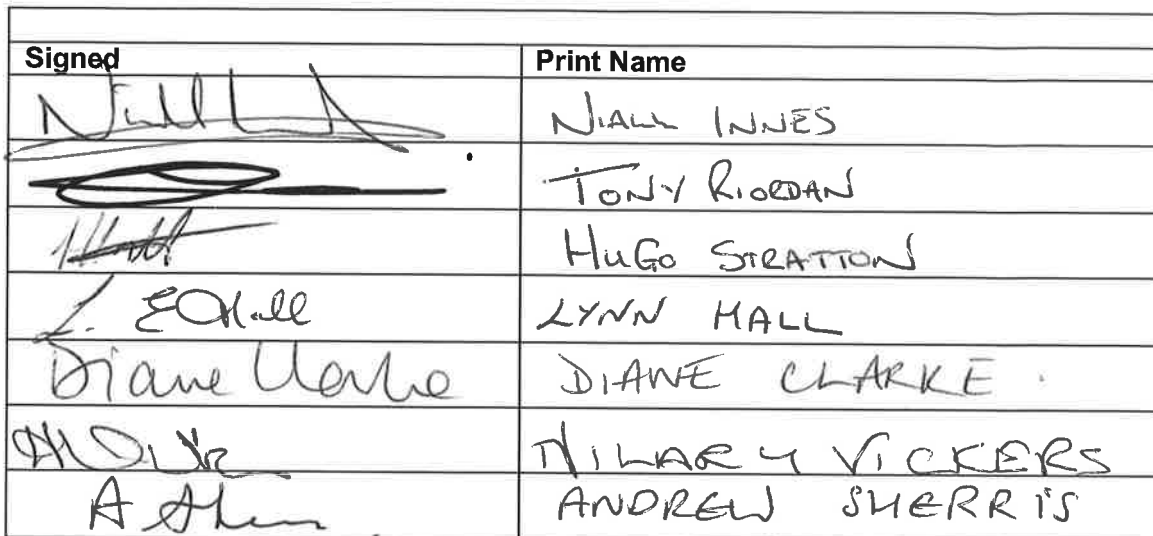 Signed Print Name
NIALL INNES
TONY RIORDAN
HUGO STRATTON
L. E Hall LYNN HALL
Diane Clarke DIANE CLARKE.
HILARY VICKERS
A ANDREW SHERRIS